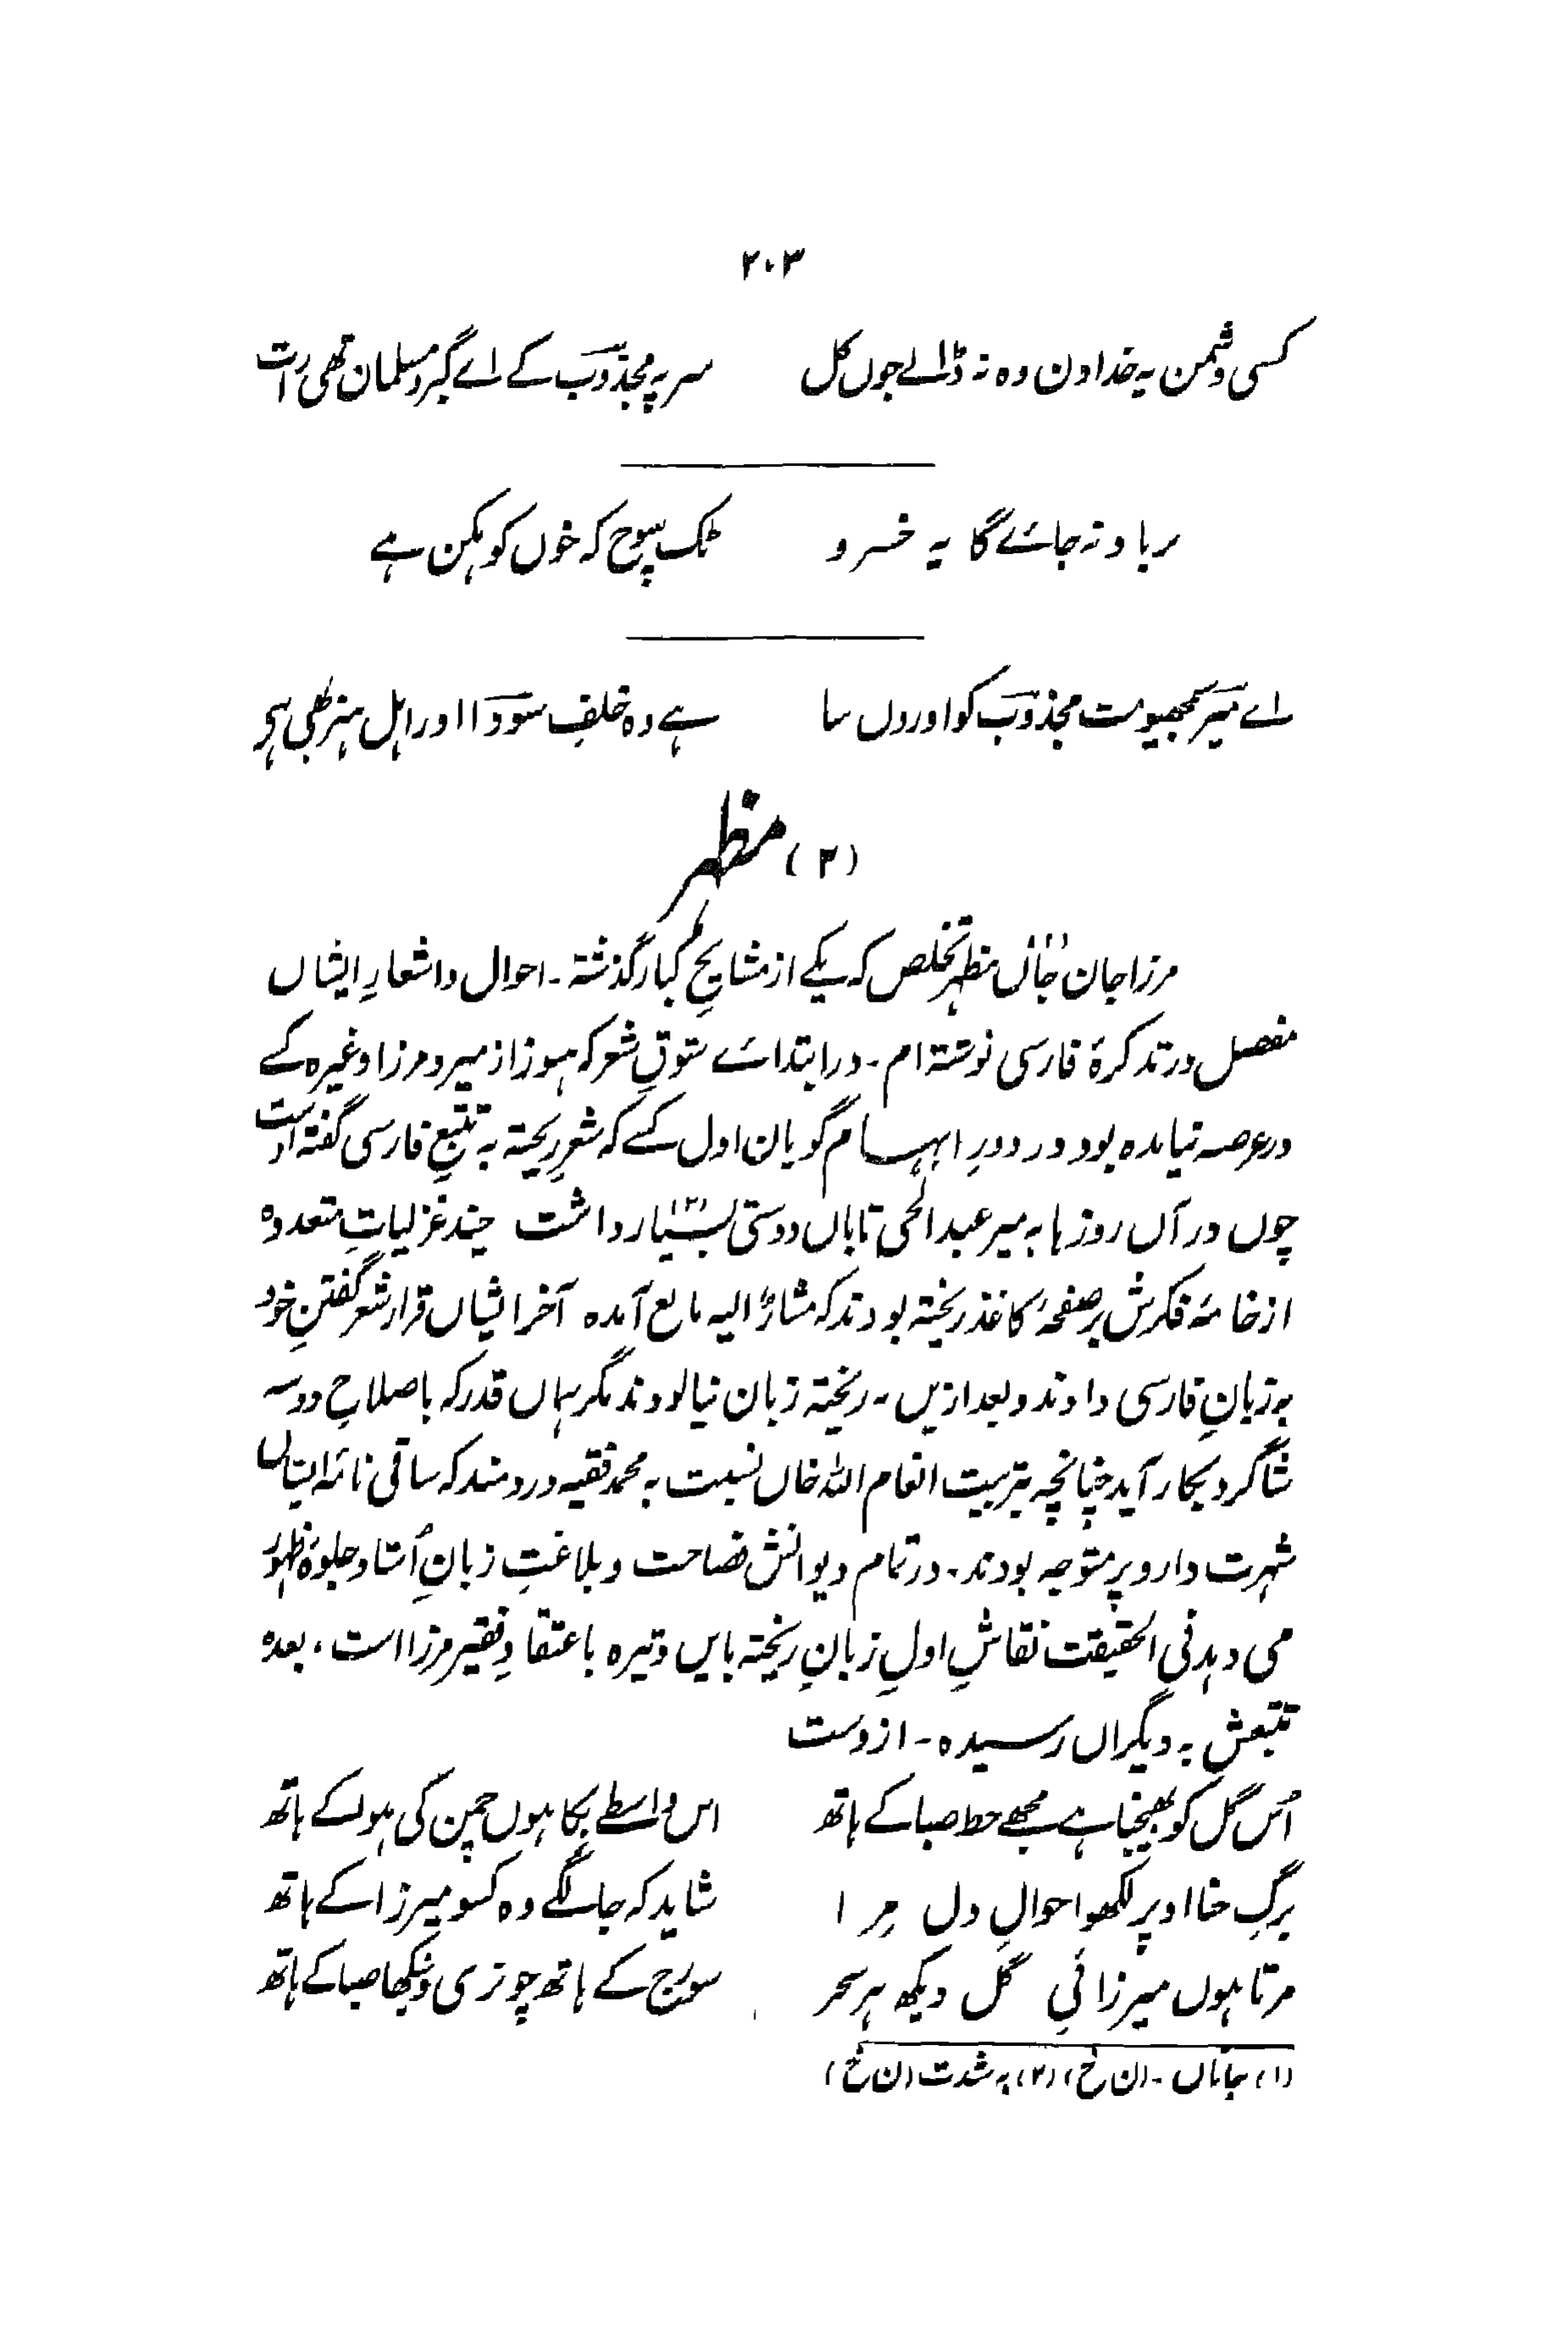 ۲۰۳
کسی دشمن پہ خدا دن وہ نہ ڈالے جوں کل سر پہ مجذوب کے اے گبر و مسلمان تھی رات
برباد نہ جائے گا یہ خسرو ٹک سوچ کہ خوں کوہکن ہے
اے میر سمجھیو مت مجذوب کو اوروں سا ہے وہ خلفِ سودا اور اہلِ ہنر بھی ہے
(۲) مظہر
مرزا جان جاناں مظہر تخلص کہ یکے از مشایخِ کبار گذشتہ ۔ احوال و اشعارِ ایشاں
مفصل در تذکرۂ فارسی نوشتہ ام ۔ در ابتدائے شوقِ شعر کہ ہنوز از میر و مرزا وغیرہ کسے
در عرصہ نیامدہ بود و در دورِ ایہام گویان اول کسے کہ شعرِ ریختہ بہ تتبعِ فارسی گفتہ اوست
چوں در آں روزہا بہ میر عبدالحی تاباں دوستی بسیار (۲) داشت چند غزلیاتِ متعددہ
از خامۂ فکرش بر صفحۂ کاغذ ریختہ بودند کہ مشارٌ الیہ مانع آمدہ آخر ایشاں قرار شعر گفتنِ خود
بہ زبانِ فارسی دادند و بعد ازیں بہ ریختہ زبان نیالودند مگر ہماں قدر کہ باصلاحِ دو سہ
شاگرد بکار آید چنانچہ بتربیت انعام اللہ خاں نسبت بہ محمد فقیہ دردمند کہ ساقی نامۂ ایشاں
شہرت دارد پر متوجہ بودند ۔ در تمام دیوانش فصاحت و بلاغتِ زبانِ اُستاد جلوۂ ظہور
می دہد فی الحقیقت نقاشِ اولِ زبانِ ریختہ بایں وتیرہ باعتقادِ فقیر مرزا است ، بعدہ
تتبعش بہ دیگراں رسیدہ ۔ از وست
اُس گل کو بھیجنا ہے مجھے خط صبا کے ہاتھ اس واسطے بکا ہوں چمن کی ہوا کے ہاتھ
برگِ حنا اوپر لکھو احوالِ دل مرا شاید کہ جا لگے وہ کسو میرزا کے ہاتھ
مرتا ہوں میرزائیِ گل دیکھ ہر سحر سورج کے ہاتھ چونری و پنکھا صبا کے ہاتھ
(۱) جاناں ۔ (ن خ) (۲) بہ شدت (ن خ)